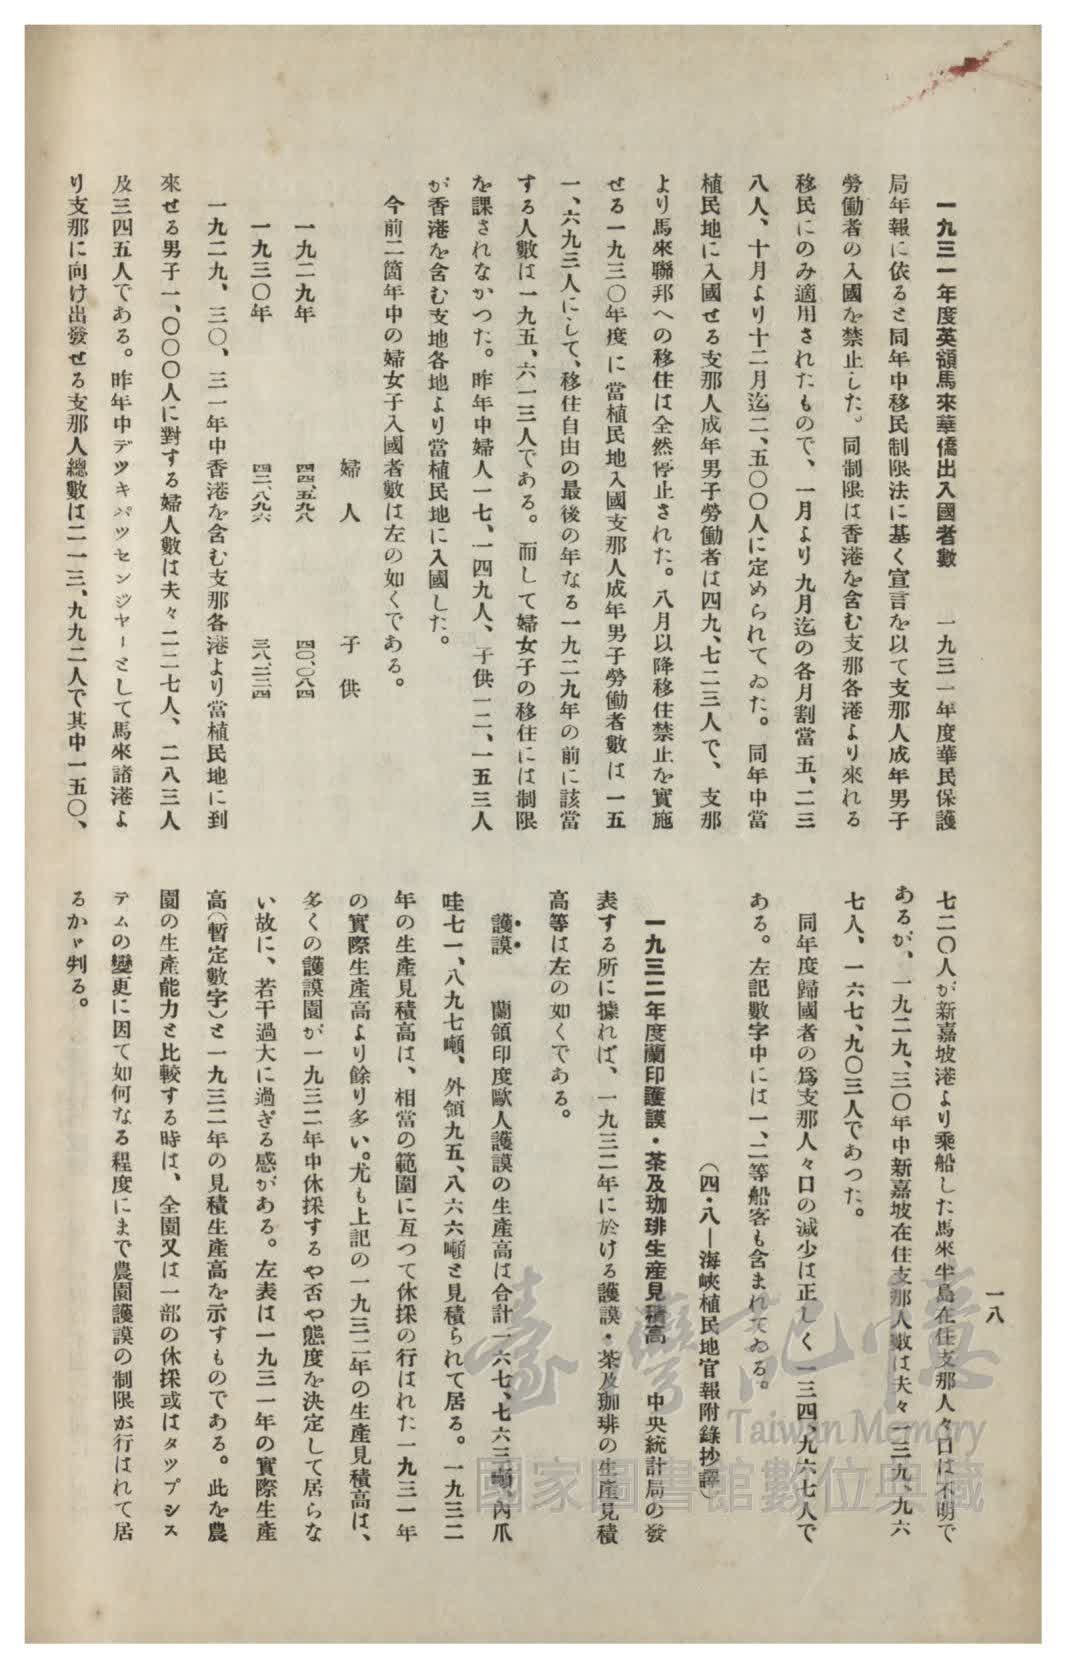 一八
一九三一年度英領馬來華僑出入國者數　一九三一年度華民保護
局年報に依ると同年中移民制限法に基く宣言を以て支那人成年男子
勞働者の入國を禁止した。同制限は香港を含む支那各港より來れる
移民にのみ適用されたもので、一月より九月迄の各月割當五、二三
八人、十月より十二月迄二、五〇〇人に定められてゐた。同年中當
植民地に入國せる支那人成年男子勞働者は四九、七二三人で、支那
より馬來聯邦への移住は全然停止された。八月以降移住禁止を實施
せる一九三〇年度に當植民地入國支那人成年男子勞働者數は一五
一、六九三人にして、移住自由の最後の年なる一九二九年の前に該當
する人數は一九五、六一三人である。而して婦女子の移住には制限
を課されなかつた。昨年中婦人一七、一四九人、子供一二、一五三人
が香港を含む支地各地より當植民地に入國した。
今前二箇年中の婦女子入國者數は左の如くである。
婦人　子供
一九二九年　四四、五九八　四〇、〇八四
一九三〇年　四二、八九六　三八、二二四
一九二九、三〇、三一年中香港を含む支那各港より當植民地に到
來せる男子一、〇〇〇人に對する婦人數は夫々二二七人、二八三人
及三四五人である。昨年中デツキパツセンジヤーとして馬來諸港よ
り支那に向け出發せる支那人總數は二一三、九九二人で其中一五〇、
七二〇人が新嘉坡港より乘船した馬來半島在住支那人々口は不明で
あるが、一九二九、三〇年中新嘉坡在住支那人數は夫々一三九、九六
七人、一六七、九〇三人であつた。
同年度歸國者の爲支那人々口の減少は正しく一三四、九六七人で
ある。左記數字中には一、二等船客も含まれてゐる。
（四・八―海峽植民地官報附錄抄譯）
一九三二年度蘭印護謨・茶及珈琲生産見積高　中央統計局の發
表する所に據れば、一九三二年に於ける護謨・茶及珈琲の生産見積
高等は左の如くである。
護謨　蘭領印度歐人護謨の生産高は合計一六七、七六三噸、内爪
哇七一、八九七噸、外領九五、八六六噸と見積られて居る。一九三二
年の生産見積高は、相當の範圍に亙つて休採の行はれた一九三一年
の實際生産高より餘り多い。尤も上記の一九三二年の生産見積高は、
多くの護謨園が一九三二年中休採するや否や態度を決定して居らな
い故に、若干過大に過ぎる感がある。左表は一九三一年の實際生産
高（暫定數字）と一九三二年の見積生産高を示すものである。此を農
園の生産能力と比較する時は、全園又は一部の休採或はタツプシス
テムの變更に因て如何なる程度にまで農園護謨の制限が行はれて居
るかゞ判る。
臺灣記憶
Taiwan Memory
國家圖書館數位典藏